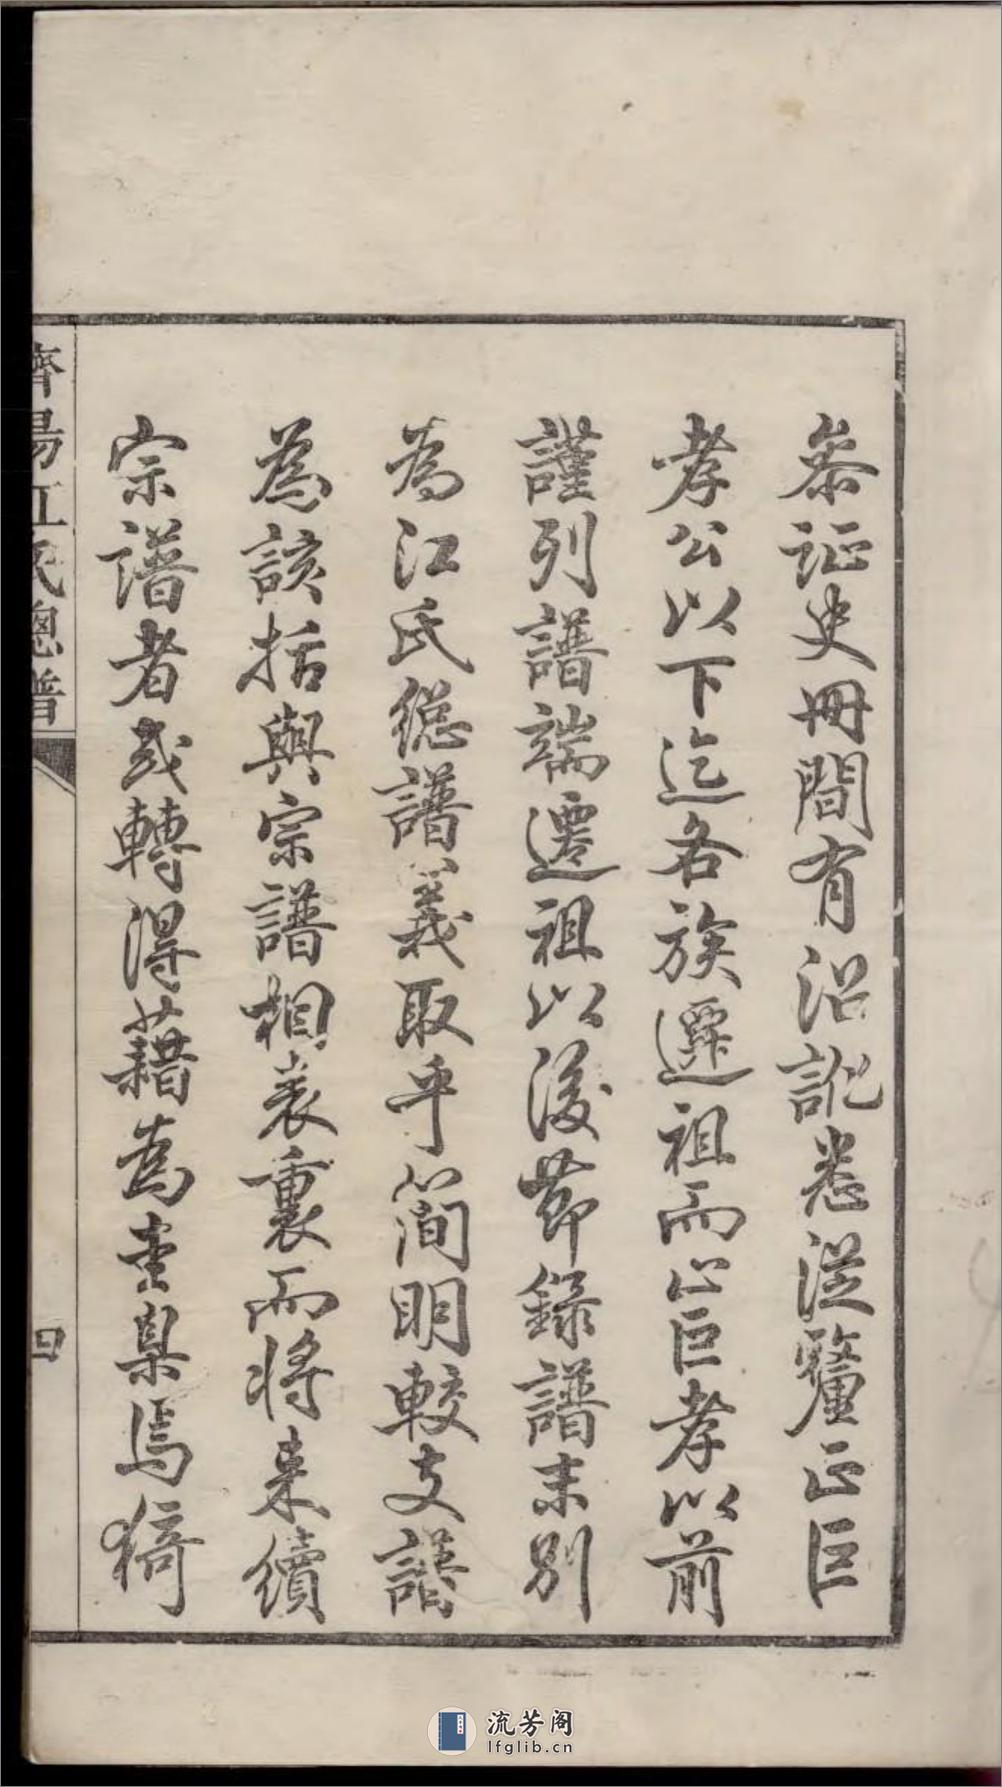 叅证史冊間有沿訛悉從釐正巨
孝公以下迄各族遷祖而止巨孝以前
謹列譜端遷祖以後節錄譜末別
為江氏總譜義取乎簡明較支譜
為該括與宗譜相表裏而將来續
宗譜者或轉得藉為圭臬焉猗
濟陽江氏總譜
四
流芳阁
lfglib.cn